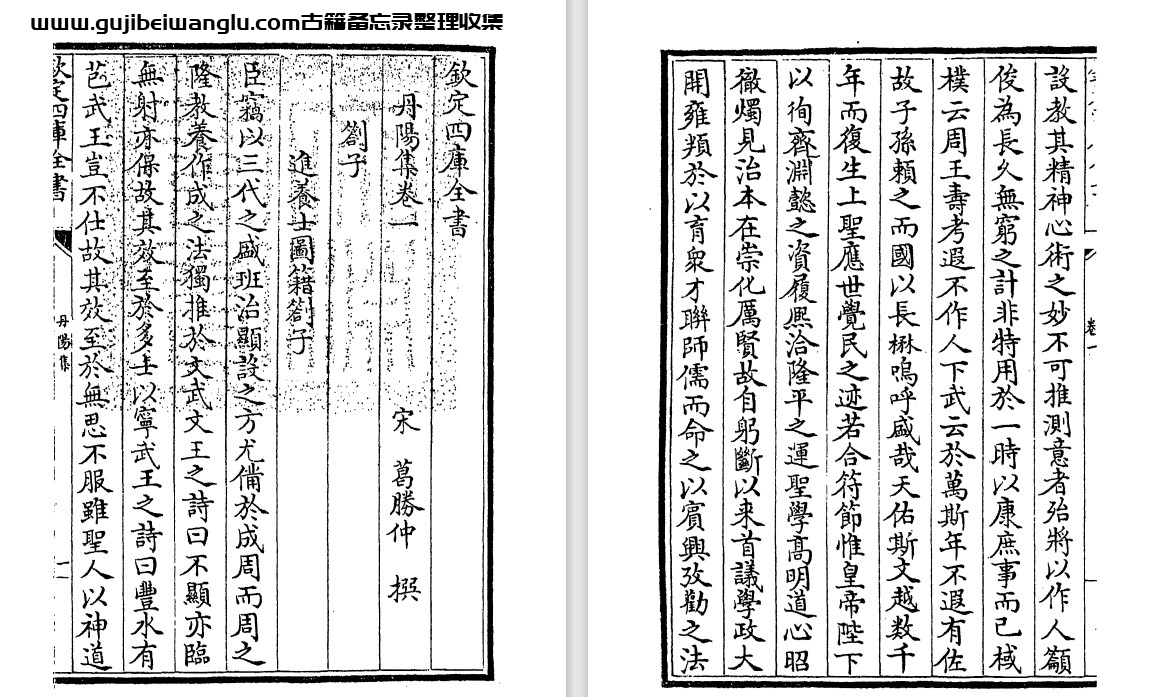 www.gujibeiwanglu.com古籍备忘录整理收集
欽定四庫全書
丹陽集卷一
宋 葛勝仲 撰
劄子
進養士圖籍劄子
臣竊以三代之盛班治顯設之方尤備於成周而周之
隆教養作成之法獨推於文武文王之詩曰不顯亦臨
無射亦保故其效至於多士以寧武王之詩曰豐水有
芑武王豈不仕故其效至於無思不服雖聖人以神道
欽定四庫全書
丹陽集
一
設教其精神心術之妙不可推測意者殆將以作人顓
俊為長久無窮之計非特用於一時以康庶事而已棫
樸云周王壽考遐不作人下武云於萬斯年不遐有佐
故子孫賴之而國以長楙嗚呼盛哉天佑斯文越数千
年而復生上聖應世覺民之迹若合符節惟皇帝陛下
以徇齊淵懿之資履熙洽隆平之運聖學高明道心昭
徹燭見治本在崇化厲賢故自躬斷以来首議學政大
開雍頖於以育衆才聨師儒而命之以賓興攷勸之法
卷一